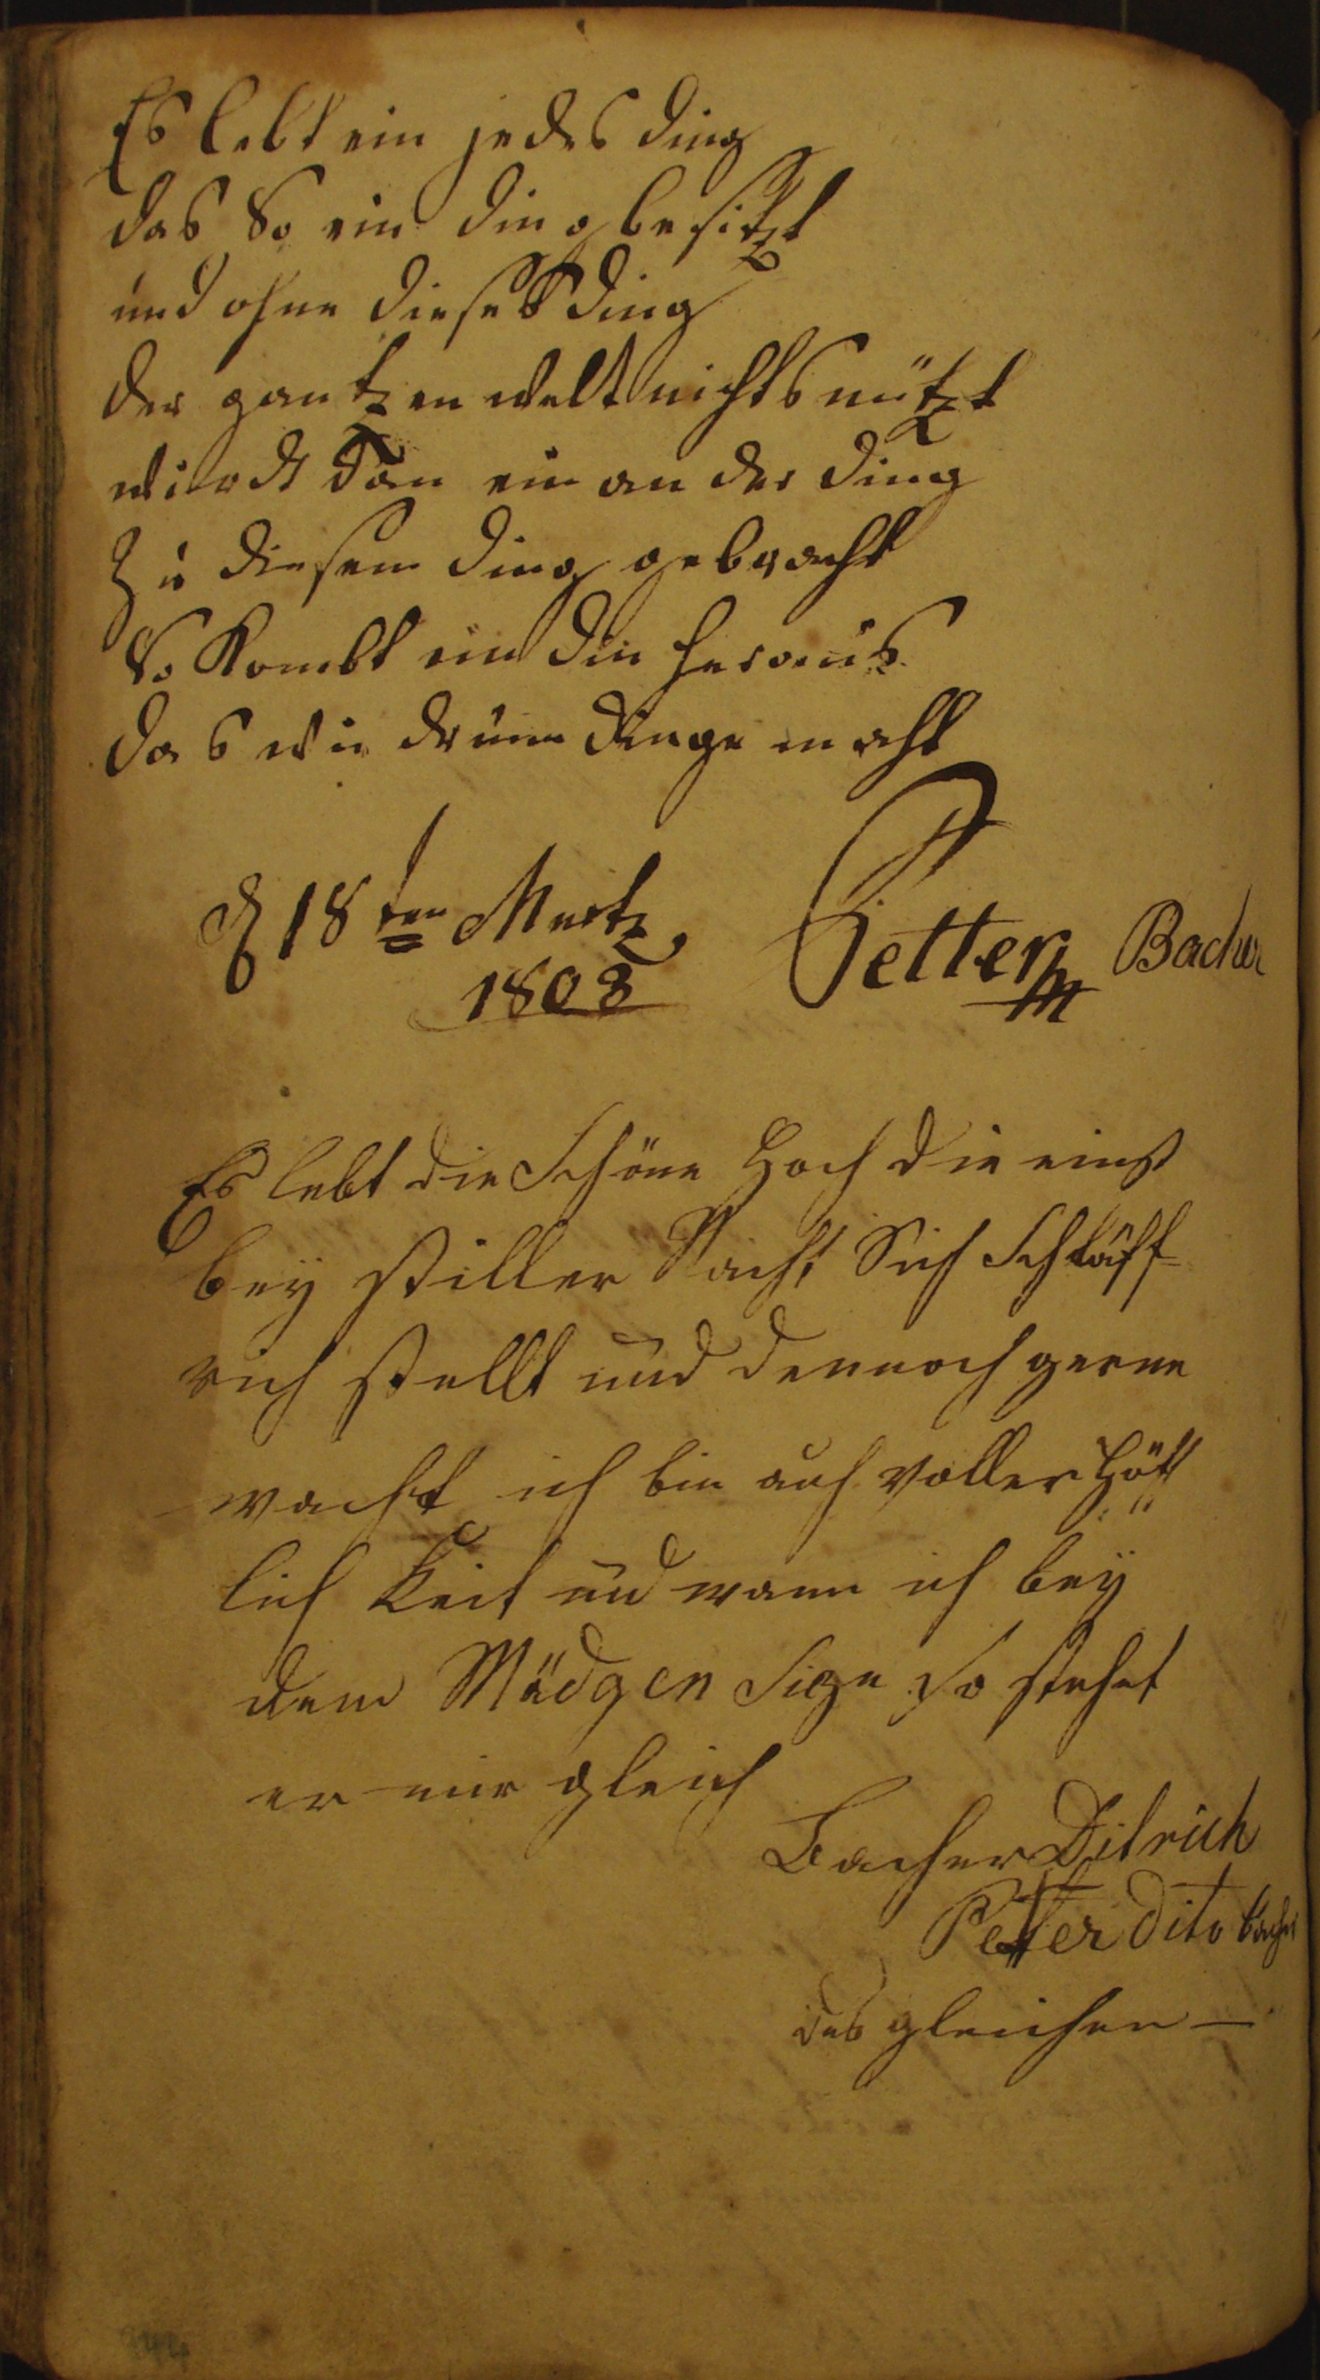 Es lebt ein jedes ding
das So ein ding besitzt
und ohne dieses ding
der gantzen welt nichts nützt
wirdt dan ein an der ding
Zu diesem ding gebracht
So kombt ein din heraus
das wie drum dinge macht
d 18ten Mertz
1803
Petter Bacher
Es lebt die Schöne Hoch die einst
bey stiller Nacht Sich Schläff-
rich stellt und dennoch gerne
wacht ich bin auch voller Höff
lich Keit und wann ich bey
dem Mädgen Size so stehet
er mir gleich
Bacher Ditrich
Petter dito bacher
des gleichen —